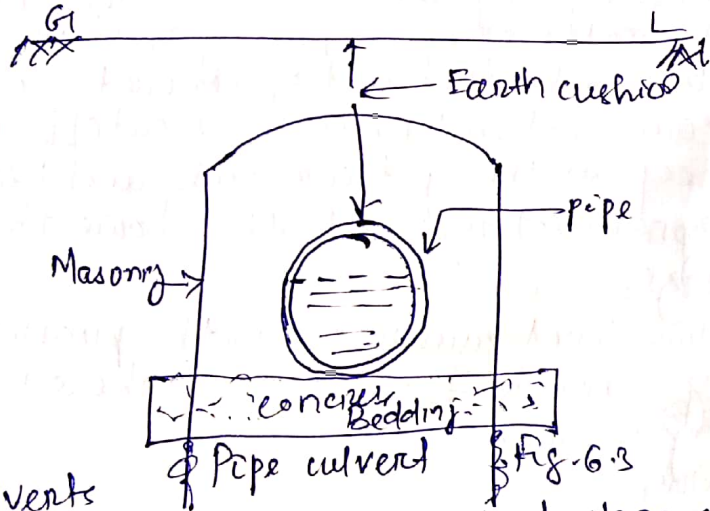 G L
Earth cushion
pipe
Masonry
concrete
Bedding
Pipe culvert Fig. 6.3
verts